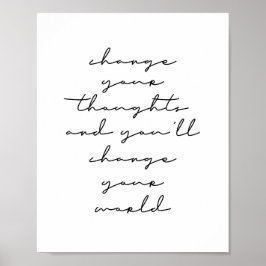 change
your
thoughts
and you'll
change
your
world